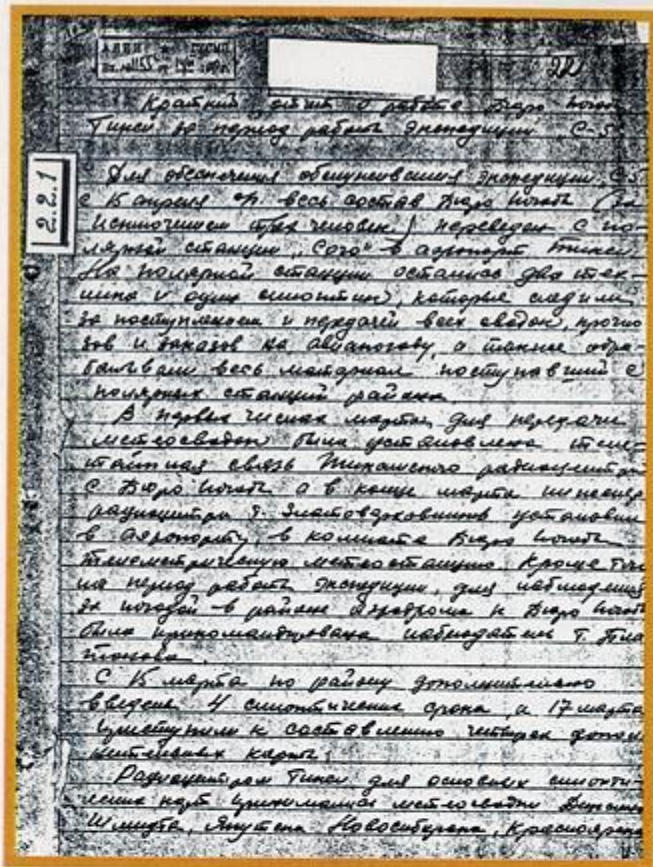 22
Краткий отчет о работе Бюро погоды
Тикси за период работы Экспедиции С-5
2.2.1
Для обеспечения обслуживания Экспедиции С-5
с 15 апреля весь состав Бюро погоды (за
исключением трех человек) переведен с по-
лярной станции "Сого" в аэропорт Тикси
На полярной станции остались два тех-
ника и один синоптик, которые следили
за поступлением и передачей всех сводок, прогно
зов и заказов на авиапогоду, а также обра-
батывали весь материал поступавший с
полярных станций района.
В первых числах марта, для передачи
метеосводок была установлена теле-
тайпная связь Тиксинского радиоцентра
с Бюро погоды а в конце марта инженер
радиоцентра т. установил
в аэропорту, в комнате Бюро погоды
метеостанцию. Кроме того
на период работы Экспедиции, для наблюдений
за погодой в районе аэродрома и Бюро погоды
была прикомандирована наблюдатель т. Пла
тонова.
С 15 марта по району дополнительно
введены 4 синоптические срока, а 17 марта
приступили к составлению четырех допол
нительных карт.
Радиоцентром Тикси для основных синопти-
ческих карт принимались метеосводки
Шмидта, Якутска Новосибирска, Красноярска